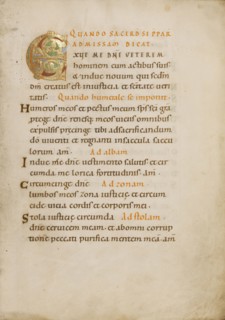 QUANDO SACERDS PPARAT
AD MISSAM DICAT
XVE ME DNE VETEREM
hominem cum actibus suis
& indue novum qui sedm
dm creatus est in iusticia & scitate veri
tatis Quando humerale se imponit.
Humeros meos et pectus meum sps sci gra
protege dne renesq; meos viciis omnibus
expulsis precinge tibi ad sacrificandum
do viventi et regnanti in saecula saecu
lorum am. Ad albam
Indue me dne vestimento salutis et cir
cumda me lorica fortitudinis. am.
Circumcinge dne Ad zonam
lumbos meos zona iusticie et circum
cide vicia cordis et corporis mei.
Stola iusticie circumda Ad stolam
dne cervicem meam et ab omni corrup
tione peccati purifica mentem meã. am